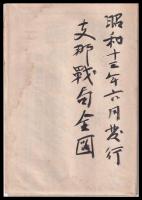 昭和十三年六月発行
支那戦局全図